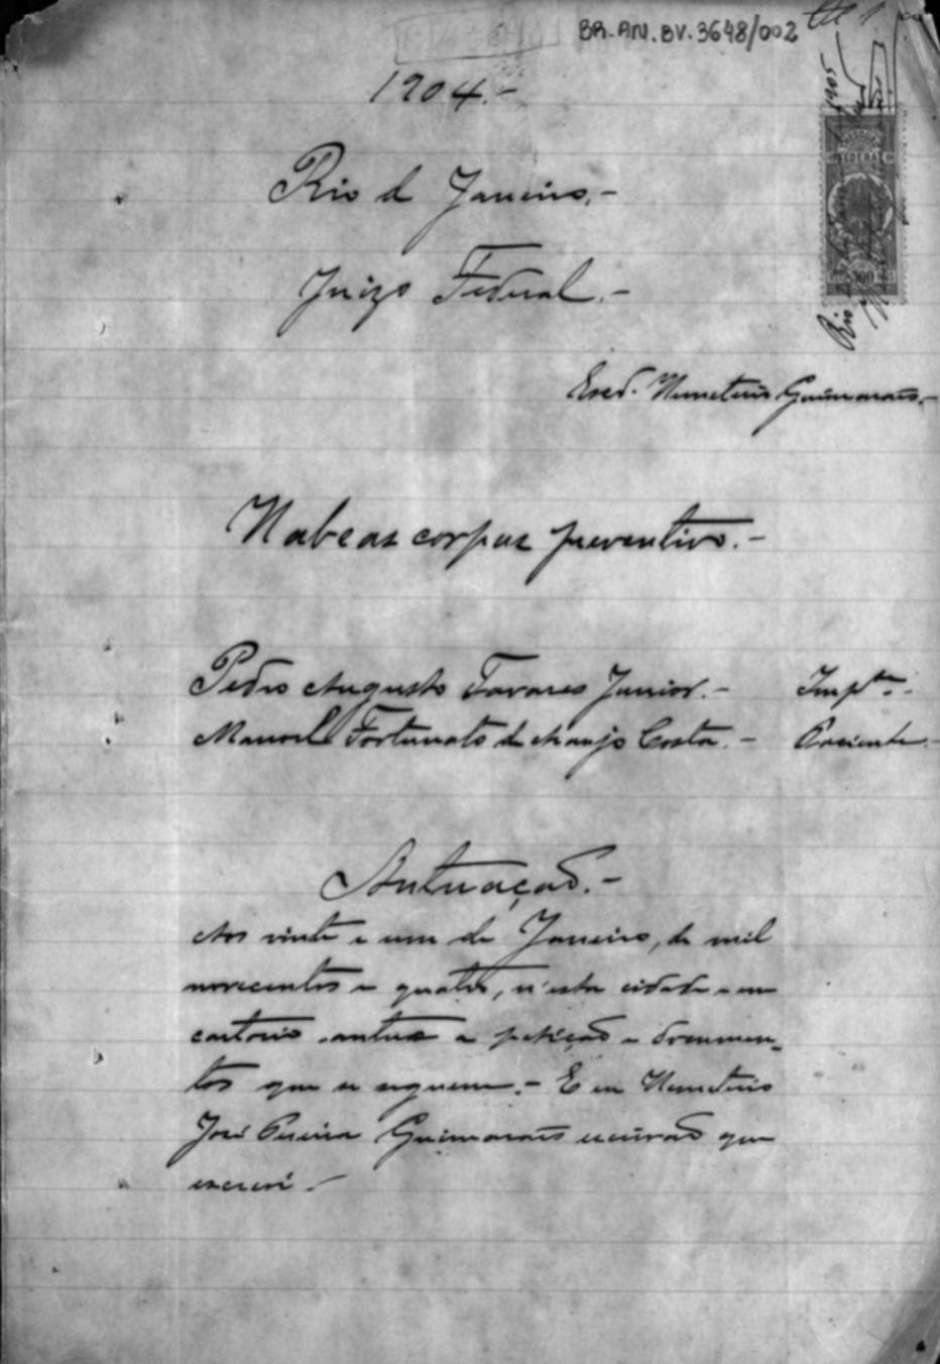 BR.AN.BV.3648/002
1904.-
Rio de Janeiro.-
Juizo Federal.-
1905
Rio
Escr.^m Hemeterio Guimarães.-
Habeas corpus preventivo.-
Pedro Augusto Tavares Junior.- Imp^te.-
Manoel Fortunato de Araujo Costa.- Paciente.-
Autuação.-
Aos vinte e um de Janeiro, de mil
novecentos e quatro, n'esta cidade e em
cartorio autuo a petição e documen-
tos que se seguem.- E eu Hemeterio
José Pereira Guimarães escrivão que
escrevi.-